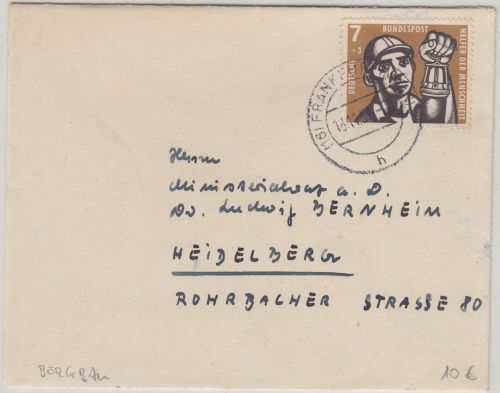 7
+3
DEUTSCHE
BUNDESPOST
HELFER DER MENSCHHEIT
(16) FRANK
h
Herrn
Ministerialrat a. D.
Dr. Ludwig BERNHEIM
HEIDELBERG
ROHRBACHER STRASSE 80
BERGBAU
10 €